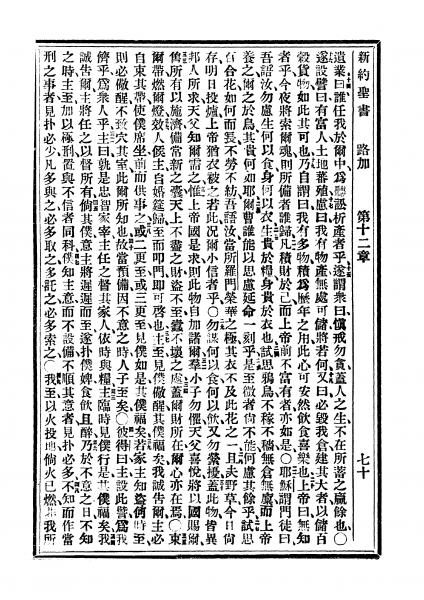 新約聖書　路加　第十二章　七十
遺業曰誰任我於爾中爲聽訟析產者乎遂謂衆曰愼戒勿貪蓋人之生不在所蓄之贏餘也〇
遂設譬曰有富人土地蕃殖慮曰我有物產無處可儲將若何又曰必毀我倉建其大者以儲百
穀貨物如此其可也乃自謂曰我有多物積爲歷年之用此心可安然飲食喜樂也上帝曰無知
者乎今夜將索爾魂則所備者誰歸凡積財於己而上帝前不富有者亦如是〇耶穌謂門徒曰
吾語汝勿慮生何以食身何以衣生貴於糧身貴於衣也試思鴉鳥不稼不穡無倉無廩而上帝
養之爾之於鳥其貴何如耶爾曹誰能以思慮延命一刻乎是至微者尙不能何慮其餘乎試思
百合花如何而長不勞不紡吾語汝當所羅門榮華之極其衣不及此花之一且夫野草今日尙
存明日投爐上帝猶衣被之若此况爾小信者乎〇勿謀何以食何以飲又勿縈擾蓋此物皆異
邦人所求天父知爾需之惟上帝國是求則此物自加諸爾羣小子勿懼天父喜悅將以國賜爾
售所有以施濟備常新之囊天上不盡之財盜不至蠹不壞之處蓋爾財所在爾心亦在焉〇束
爾帶燃爾燈效人候主自婚筵歸至而叩門即可啓也主至見僕儆醒其僕福矣我誠告爾主必
自束其帶使僕席坐前而供事之或二更至或三更至見僕如是其僕福矣若家主知盜何時至
則必儆醒不致穴其室此爾所知也故當預備因不意之時人子至矣〇彼得曰主設此譬爲我
儕乎爲衆人乎主曰孰是忠智家宰主任之督其家人依時與糧主臨時見僕行是其僕福矣我
誠告爾主將任之以督所有倘其僕意主將遲遲而至遂扑僕婢食飲且醉乃於不意之日不知
之時主至加以極刑置與不信者同科僕知主意而不設備不順其意者見扑必多不知而作當
刑之事者見扑必少凡多與之必多取之多託之必多索之〇我至以火投地倘火已燃我所